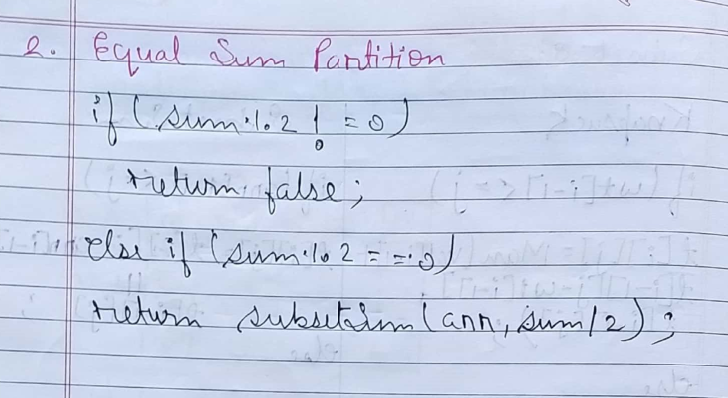 2. Equal Sum Partition
if (sum % 2 != 0)
return false;
else if (sum % 2 == 0)
return subsetSum (arr, sum/2);